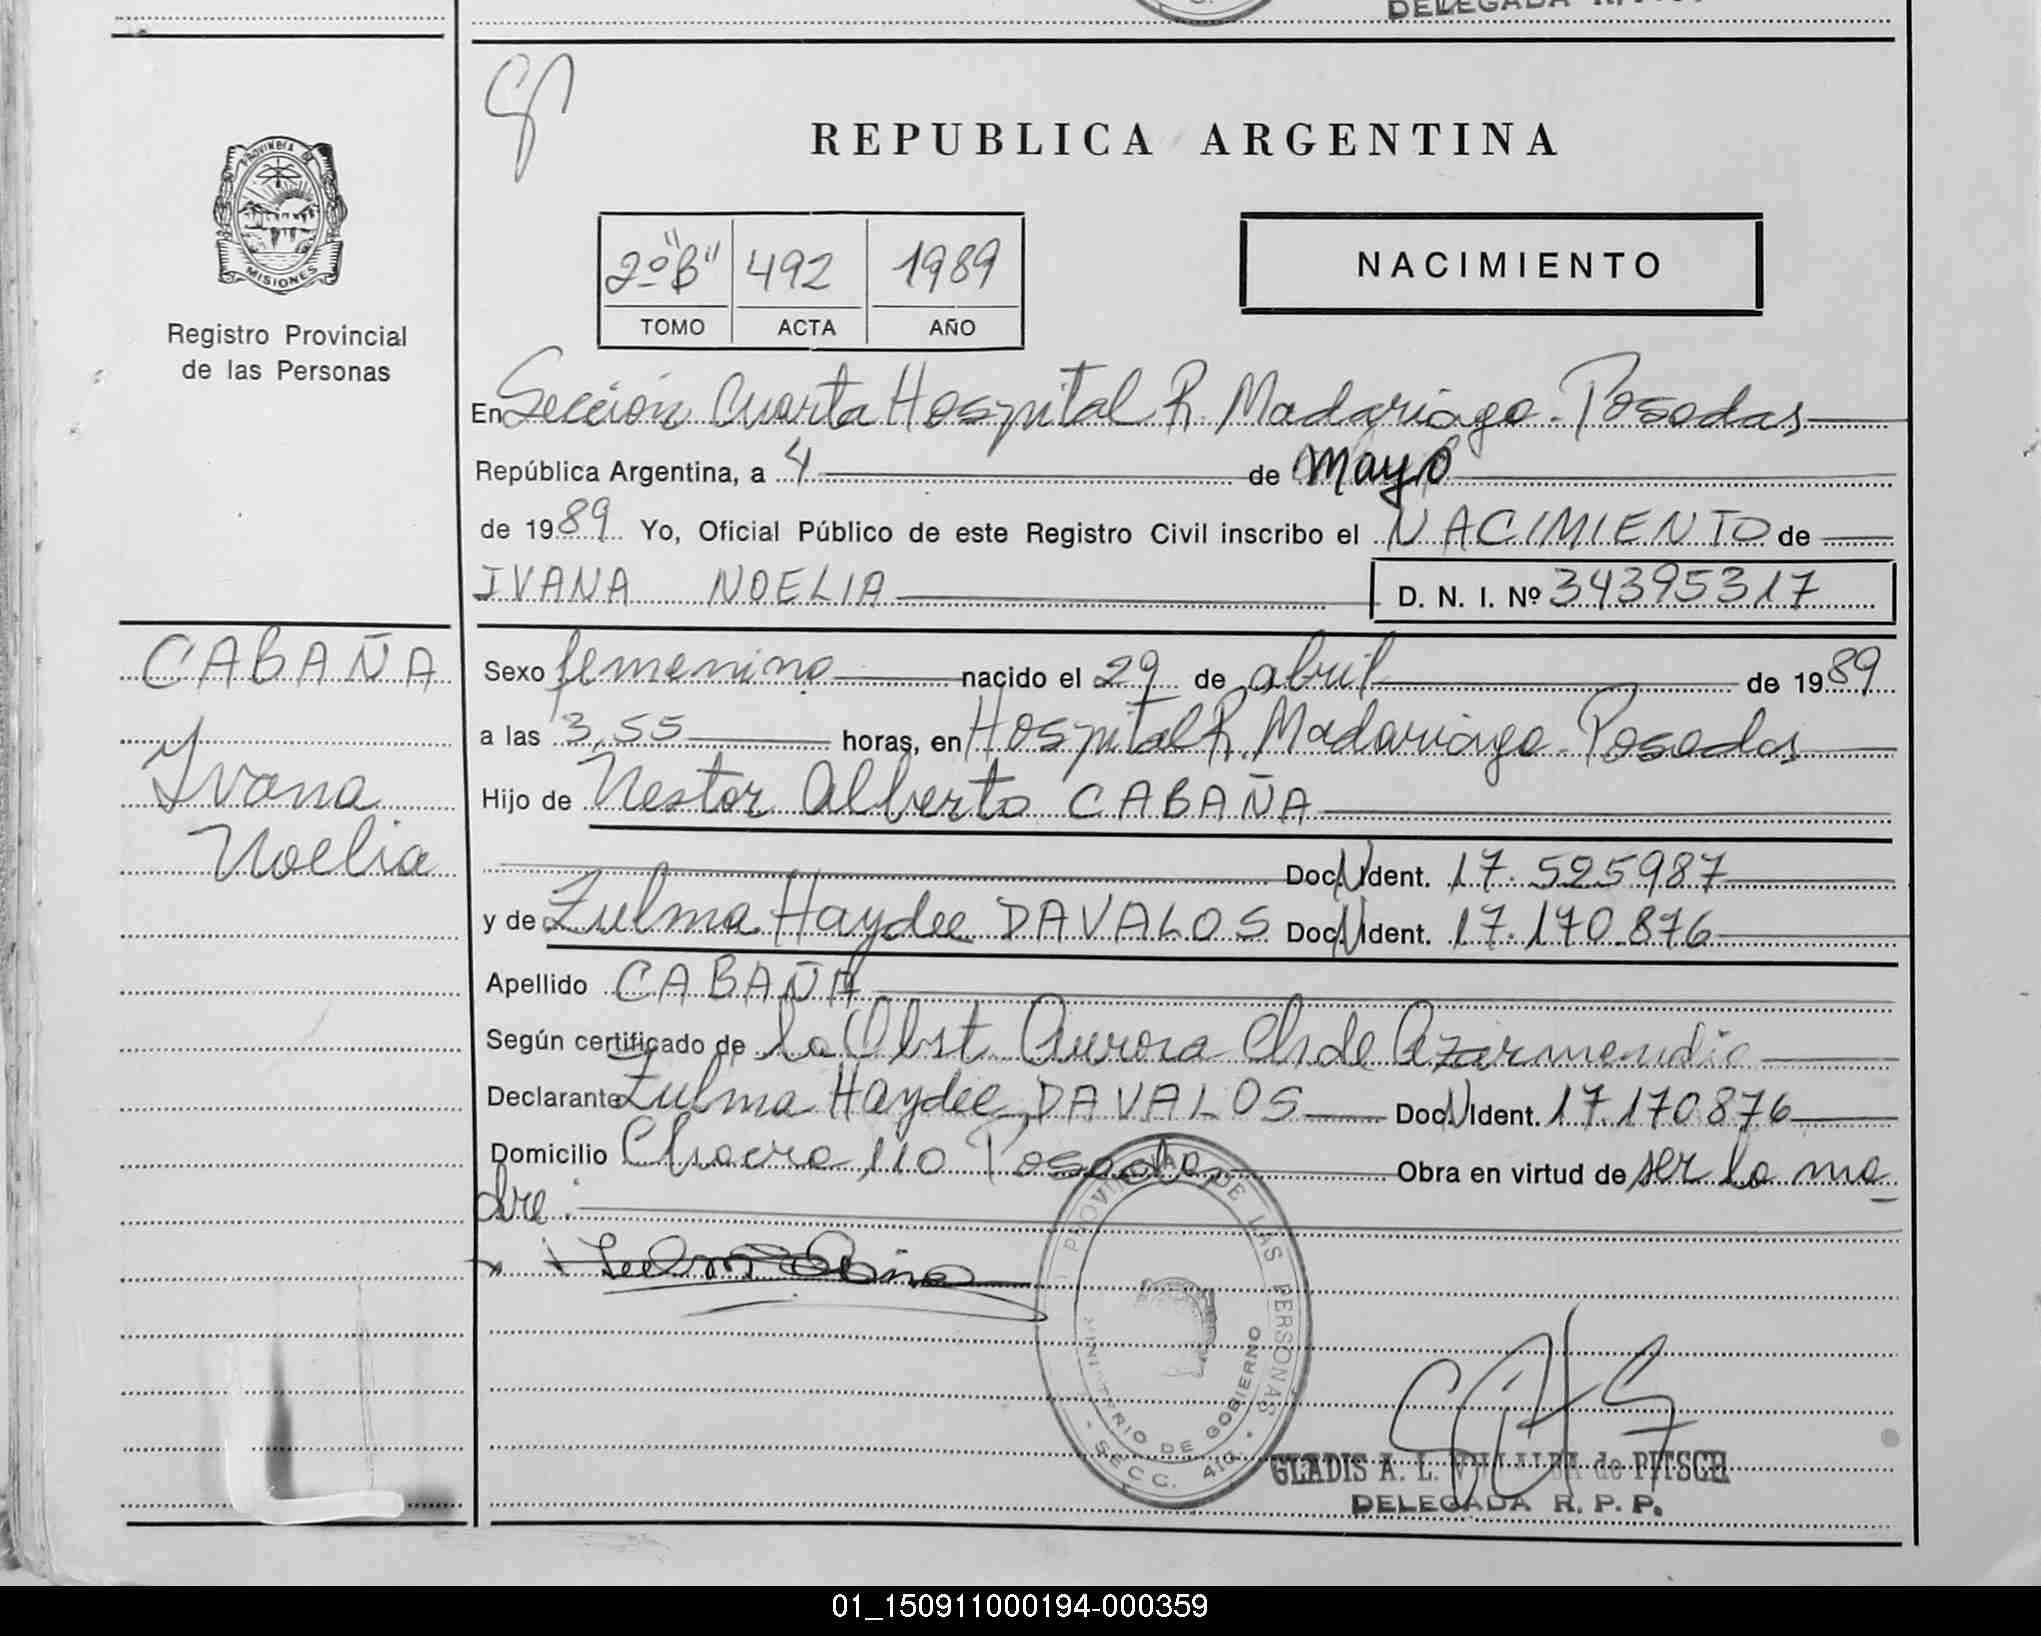 DELEGADA R.
REPUBLICA ARGENTINA
PROVINCIA DE
MISIONES
Registro Provincial
de las Personas
2º "B" 492 1989
TOMO ACTA AÑO
NACIMIENTO
En Sección Cuarta Hospital R. Madariaga - Posadas
República Argentina, a 4 de Mayo
de 1989 Yo, Oficial Público de este Registro Civil inscribo el NACIMIENTO de
IVANA NOELIA D. N. I. Nº 34395317
CABAÑA
Ivana
Noelia
Sexo femenino nacido el 29 de abril de 1989
a las 3,55 horas, en Hospital R. Madariaga - Posadas
Hijo de Nestor Alberto CABAÑA
Doc. N Ident. 17.525987
y de Zulma Haydee DAVALOS Doc. N Ident. 17.170.876
Apellido CABAÑA
Según certificado de la Obst. Aurora Ch de Azarmendia
Declarante Zulma Haydee DAVALOS Doc. N Ident. 17.170876
Domicilio Chacra 110 Posadas Obra en virtud de ser la ma
dre.
PROVINCIAL DE LAS PERSONAS
MINISTERIO DE GOBIERNO
- SECC. 410 -
GLADIS A. L. VILLALBA de PITSCH
DELEGADA R. P. P.
01_150911000194-000359